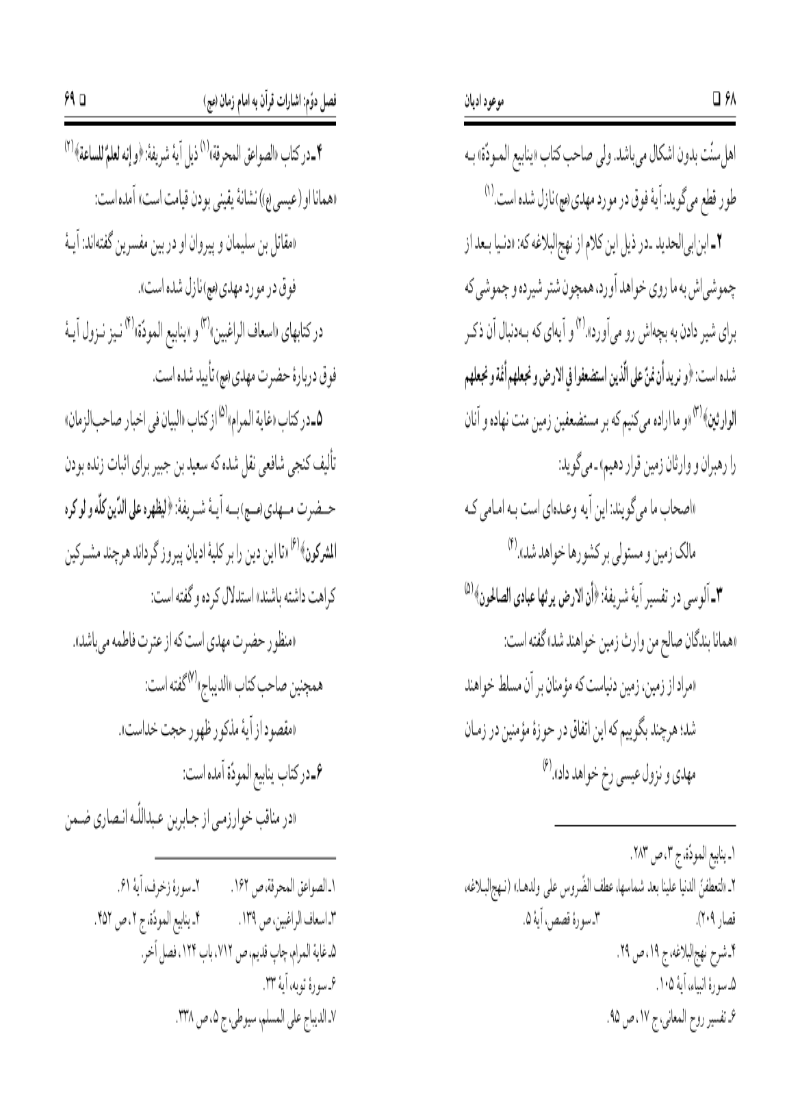 ۶۸ □ موعود ادیان
اهل‌سنّت بدون اشکال می‌باشد. ولی صاحب کتاب «ینابیع المـودّة» بـه
طور قطع می‌گوید: آیهٔ فوق در مورد مهدی(عج) نازل شده است.(۱)
۲ـ ابن‌ابی‌الحدید ـ در ذیل این کلام از نهج‌البلاغه که: «دنـیا بـعد از
چموشی‌اش به ما روی خواهد آورد، همچون شتر شیرده و چموشی که
برای شیر دادن به بچه‌اش رو می‌آورد».(۲) و آیه‌ای که به‌دنبال آن ذکـر
شده است: ﴿و نرید أن نمنّ علی الّذین استضعفوا فی الارض و نجعلهم أئمة و نجعلهم
الوارثین﴾(۳) «و ما اراده می‌کنیم که بر مستضعفین زمین منت نهاده و آنان
را رهبران و وارثان زمین قرار دهیم» ـ می‌گوید:
«اصحاب ما می‌گویند: این آیه وعـده‌ای است بـه امـامی کـه
مالک زمین و مستولی بر کشورها خواهد شد».(۴)
۳ـ آلوسی در تفسیر آیهٔ شریفهٔ: ﴿أن الارض یرثها عبادی الصالحون﴾(۵)
«همانا بندگان صالح من وارث زمین خواهند شد» گفته است:
«مراد از زمین، زمین دنیاست که مؤمنان بر آن مسلط خواهند
شد؛ هرچند بگوییم که این اتفاق در حوزهٔ مؤمنین در زمـان
مهدی و نزول عیسی رخ خواهد داد».(۶)
۱ـ ینابیع المودّة، ج ۳، ص ۲۸۳.
۲ـ «لتعطفنّ الدنیا علینا بعد شماسها، عطف الضّروس علی ولدهـا.» (نـهج‌البـلاغه،
قصار ۲۰۹). ۳ـ سورهٔ قصص، آیهٔ ۵.
۴ـ شرح نهج‌البلاغه، ج ۱۹، ص ۲۹.
۵ـ سورهٔ انبیاء، آیهٔ ۱۰۵.
۶ـ تفسیر روح المعانی، ج ۱۷، ص ۹۵.
فصل دوّم: اشارات قرآن به امام زمان (عج) □ ۶۹
۴ـ در کتاب «الصواعق المحرقة»(۱) ذیل آیهٔ شریفهٔ: ﴿و إنه لعلمٌ للساعة﴾(۲)
«همانا او (عیسی(ع)) نشانهٔ یقینی بودن قیامت است» آمده است:
«مقاتل بن سلیمان و پیروان او در بین مفسرین گفته‌اند: آیـهٔ
فوق در مورد مهدی(عج) نازل شده است».
در کتابهای «اسعاف الراغبین»(۳) و «ینابیع المودّة»(۴) نـیز نـزول آیـهٔ
فوق دربارهٔ حضرت مهدی(عج) تأیید شده است.
۵ـ در کتاب «غایة المرام»(۵) از کتاب «البیان فی اخبار صاحب‌الزمان»
تألیف کنجی شافعی نقل شده که سعید بن جبیر برای اثبات زنده بودن
حـضرت مـهدی(عج) بـه آیـهٔ شـریفهٔ: ﴿لیظهره علی الدّین کلّه و لو کره
المشرکون﴾(۶) «تا این دین را بر کلیهٔ ادیان پیروز گرداند هرچند مشـرکین
کراهت داشته باشند» استدلال کرده و گفته است:
«منظور حضرت مهدی است که از عترت فاطمه می‌باشد».
همچنین صاحب کتاب «الدیباج»(۷) گفته است:
«مقصود از آیهٔ مذکور ظهور حجت خداست».
۶ـ در کتاب ینابیع المودّة آمده است:
«در مناقب خوارزمـی از جـابربن عـبداللّـه انـصاری ضـمن
۱ـ الصواعق المحرقة، ص ۱۶۲. ۲ـ سورهٔ زخرف، آیهٔ ۶۱.
۳ـ اسعاف الراغبین، ص ۱۳۹. ۴ـ ینابیع المودّة، ج ۲، ص ۴۵۲.
۵ـ غایة المرام، چاپ قدیم، ص ۷۱۲، باب ۱۲۴، فصل آخر.
۶ـ سورهٔ توبه، آیهٔ ۳۳.
۷ـ الدیباج علی المسلم، سیوطی، ج ۵، ص ۳۳۸.